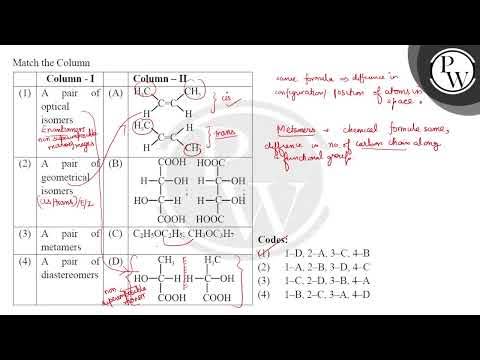 Match the Column
Column - I
Column – II
(1) A pair of optical isomers
Enantiomers
non superimposable
mirror images
(A) H3C CH3
C=C
H H
} cis
H3C H
C=C
H CH3
} trans
(2) A pair of geometrical isomers
(cis/trans)/E/Z
(B) COOH HOOC
H–C–OH H–C–OH
HO–C–H HO–C–H
COOH HOOC
(3) A pair of metamers
(C) C2H5OC2H5; CH3OC3H7
(4) A pair of diastereomers
(D) CH3 H3C
HO–C–H H–C–OH
COOH COOH
non
superimposable
mirror
PW
same formula ⇒ difference in
configuration/ position of atoms in
space.
Metamers → chemical formula same,
difference in no. of carbon chain along
functional group.
Codes:
(1) 1–D, 2–A, 3–C, 4–B
(2) 1–A, 2–B, 3–D, 4–C
(3) 1–C, 2–D, 3–B, 4–A
(4) 1–B, 2–C, 3–A, 4–D